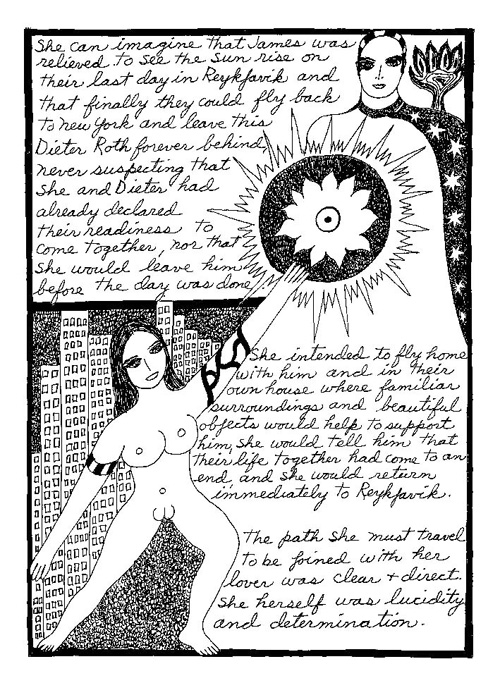 She can imagine that James was
relieved to see the sun rise on
their last day in Reykjavik and
that finally they could fly back
to new York and leave this
Dieter Roth forever behind,
never suspecting that
She and Dieter had
already declared
their readiness to
come together, nor that
She would leave him
before the day was done.
She intended to fly home
with him and in their
own house where familiar
surroundings and beautiful
objects would help to support
him, She would tell him that
their life together had come to an
end, and she would return
immediately to Reykjavik.
The path she must travel
to be joined with her
lover was clear + direct.
She herself was lucidity
and determination.